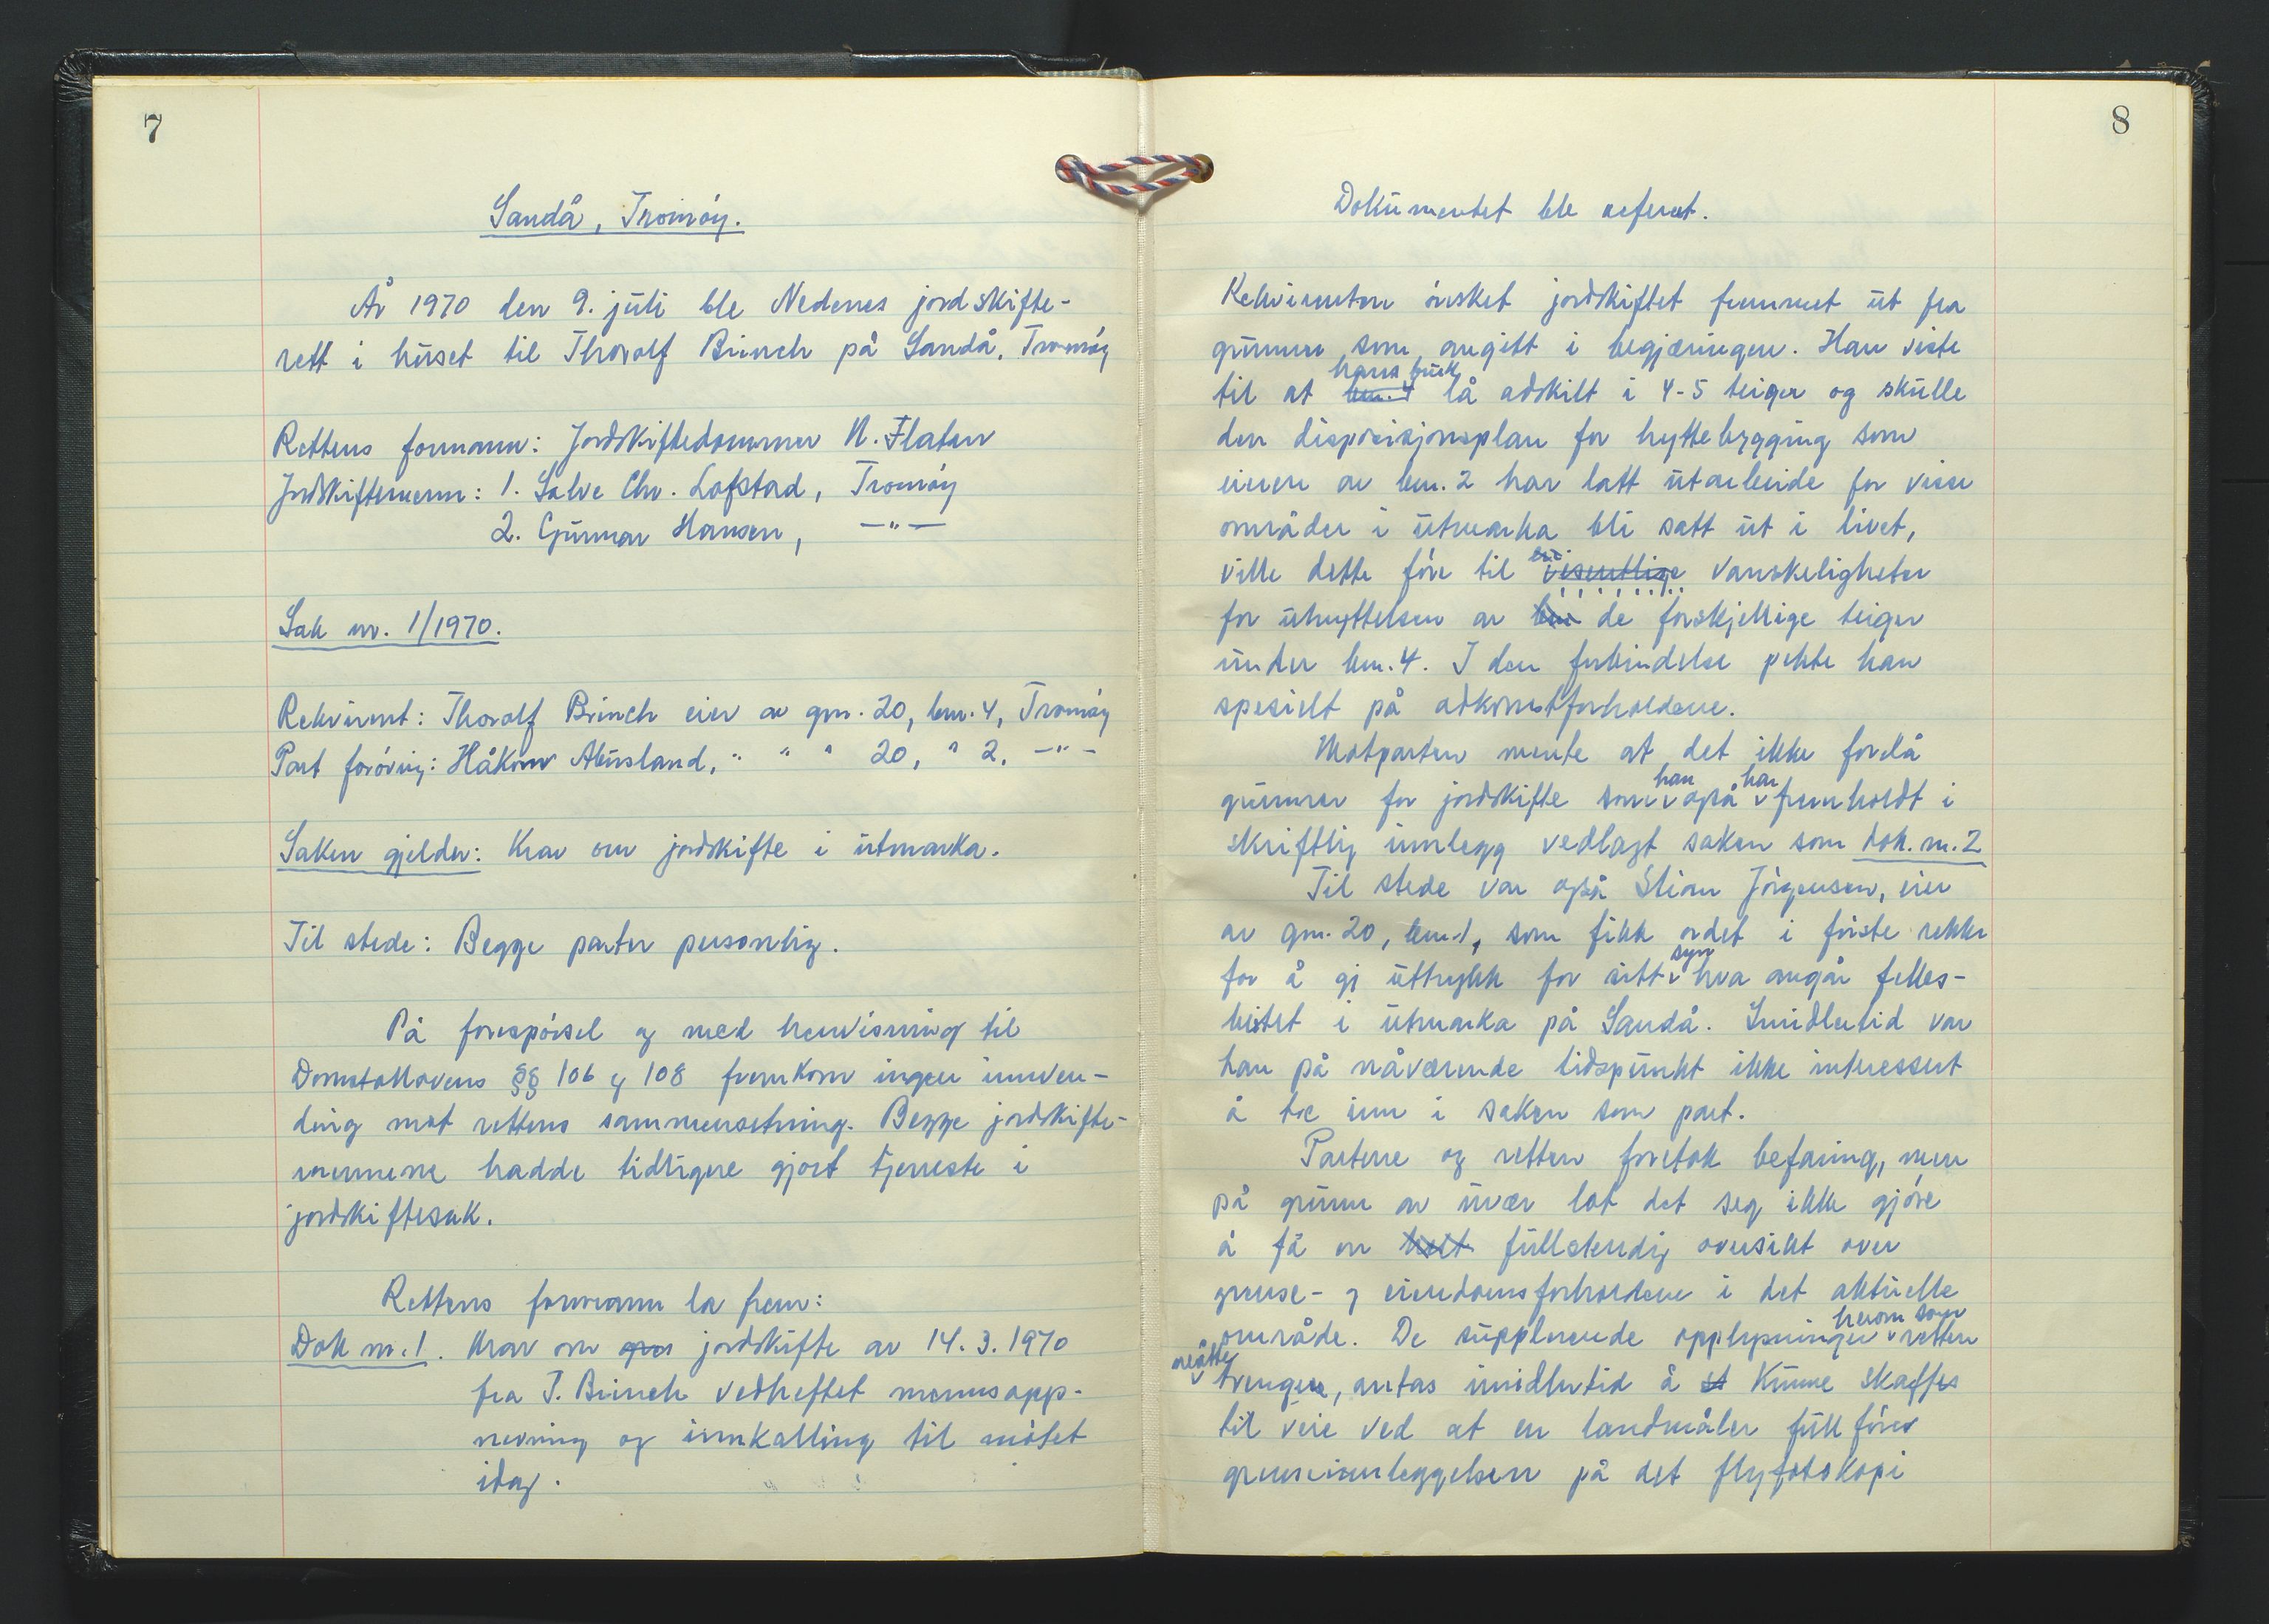 7
Sandå, Tromöy.
År 1970 den 9. juli ble Nedenes jordskifte-
rett i huset til Thorolf Brinch på Sandå, Tromöy
Rettens formann: Jordskiftedommer N. Flaten
Jordskiftemenn: 1. Salve Chr. Lofstad, Tromöy
2. Gunnar Hansen, —"—
Sak nr. 1/1970.
Rekvirent: Thorolf Brinch eier av gnr. 20, bnr. 4, Tromöy
Part forövrig: Håkon Ausland, " " " 20, " 2, —"—
Saken gjelder: Krav om jordskifte i utmarka.
Til stede: Begge parter personlig.
På forespörsel og med henvisning til
Domstollovens §§ 106 og 108 fremkom ingen innven-
ding mot rettens sammensetning. Begge jordskifte-
mennene hadde tidligere gjort tjeneste i
jordskiftesak.
Rettens formann la frem:
Dok nr. 1. Krav om jordskifte av 14.3.1970
fra T. Brinch vedheftet mannsopp-
nevning og innkalling til mötet
idag.
8
Dokumentet ble referert.
Rekvirenten önsket jordskiftet fremmet ut fra
grunner som angitt i begjæringen. Han viste
til at bnr. 4 hans bruk lå adskilt i 4-5 teiger og skulle
den disposisjonsplan for hyttebygging som
eieren av bnr. 2 har latt utarbeide for visse
områder i utmarka bli satt ut i livet,
ville dette före til vesentlige vanskeligheter
for utnyttelsen av de forskjellige teiger
under bnr. 4. I den forbindelse pekte han
spesielt på adkomstforholdene.
Motparten mente at det ikke forelå
grunner for jordskifte som han også har fremholdt i
skriftlig innlegg vedlagt saken som dok. nr. 2
Til stede var også Stian Jörgensen, eier
av gnr. 20, bnr. 1, som fikk ordet i förste rekke
for å gi uttrykk for sitt syn hva angår felles-
beitet i utmarka på Sandå. Imidlertid var
han på nåværende tidspunkt ikke interessert
å tre inn i saken som part.
Partene og retten foretok befaring, men
på grunn av uvær lot det seg ikke gjöre
å få en helt fullstendig oversikt over
grense- og eiendomsforholdene i det aktuelle
område. De supplerende opplysninger herom som retten
måtte trenge, antas imidlertid å kunne skaffes
til veie ved at en landmåler fullförer
grenseinnleggelsen på det flyfotokopi